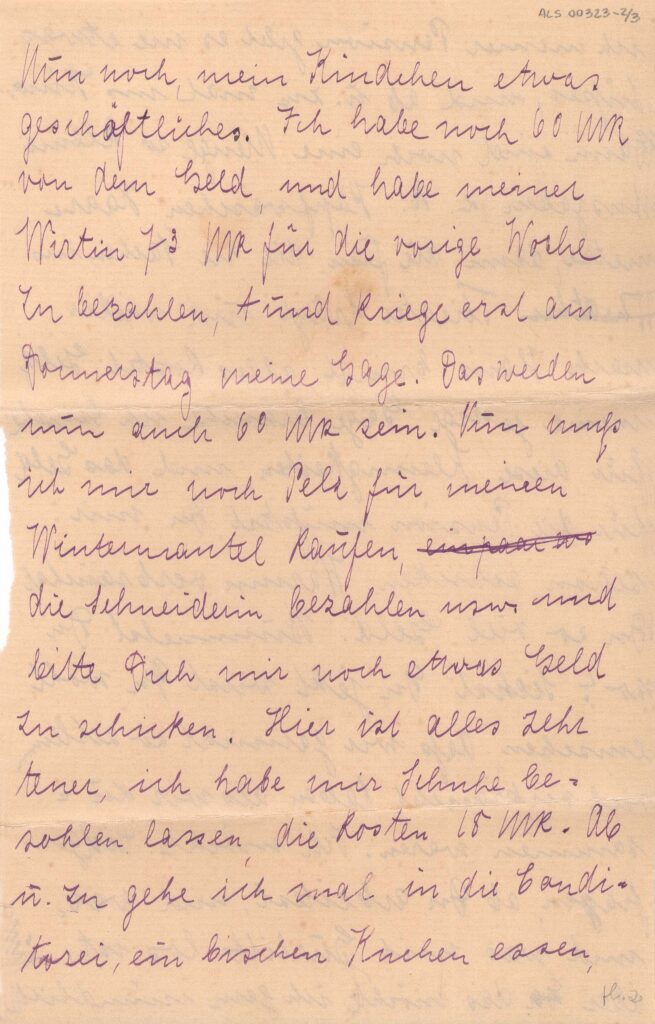 ALS 00323-2/3
Nun noch, mein Kindchen etwas
geschäftliches. Ich habe noch 60 MK
von dem Geld, und habe meiner
Wirtin 73 MK für die vorige Woche
zu bezahlen, und kriege erst am
Donnerstag meine Gage. Das werden
nun auch 60 MK sein. Nun muß
ich mir noch Pelz für meinen
Wintermantel kaufen, ein paar
die Schneiderin bezahlen usw. und
bitte Dich mir noch etwas Geld
zu schicken. Hier ist alles sehr
teuer, ich habe mir Schuhe be-
sohlen lassen, die kosten 18 MK. Ab
u. zu gehe ich mal in die Condi-
torei, ein bischen Kuchen essen,